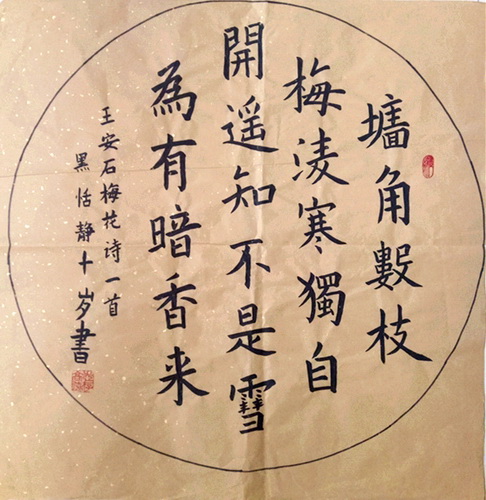 墻角數枝
梅淩寒獨自
開遥知不是雪
為有暗香来
王安石梅花诗一首
黑恬静十岁書